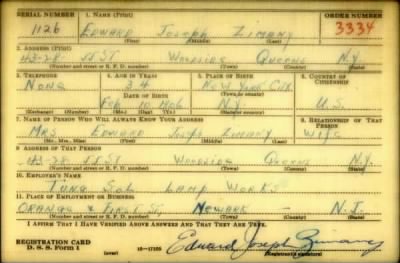 SERIAL NUMBER 1. NAME (Print) ORDER NUMBER
1126 EDWARD JOSEPH ZIMANY 3334
(First) (Middle) (Last)
2. ADDRESS (Print)
ST WOODSIDE QUEENS N.Y.
(Number and street or R. F. D. number) (Town) (County) (State)
3. TELEPHONE 4. AGE IN YEARS 5. PLACE OF BIRTH 6. COUNTRY OF CITIZENSHIP
NONE 34 NEW YORK CITY
DATE OF BIRTH (Town or county)
FEB 10 1906 N.Y. U.S.
(Exchange) (Number) (Mo.) (Day) (Yr.) (State or country)
7. NAME OF PERSON WHO WILL ALWAYS KNOW YOUR ADDRESS 8. RELATIONSHIP OF THAT PERSON
MRS EDWARD JOSEPH ZIMANY WIFE
(Mr., Mrs., Miss) (First) (Middle) (Last)
9. ADDRESS OF THAT PERSON
ST WOODSIDE QUEENS N.Y.
(Number and street or R. F. D. number) (Town) (County) (State)
10. EMPLOYER'S NAME
TUNG SOL LAMP WORKS
11. PLACE OF EMPLOYMENT OR BUSINESS
ORANGE & FIRST ST, NEWARK - N.J.
(Number and street or R. F. D. number) (Town) (County) (State)
I AFFIRM THAT I HAVE VERIFIED ABOVE ANSWERS AND THAT THEY ARE TRUE.
REGISTRATION CARD
D. S. S. Form 1 (over) 16—17105 Edward Joseph Zimany
(Registrant's signature)